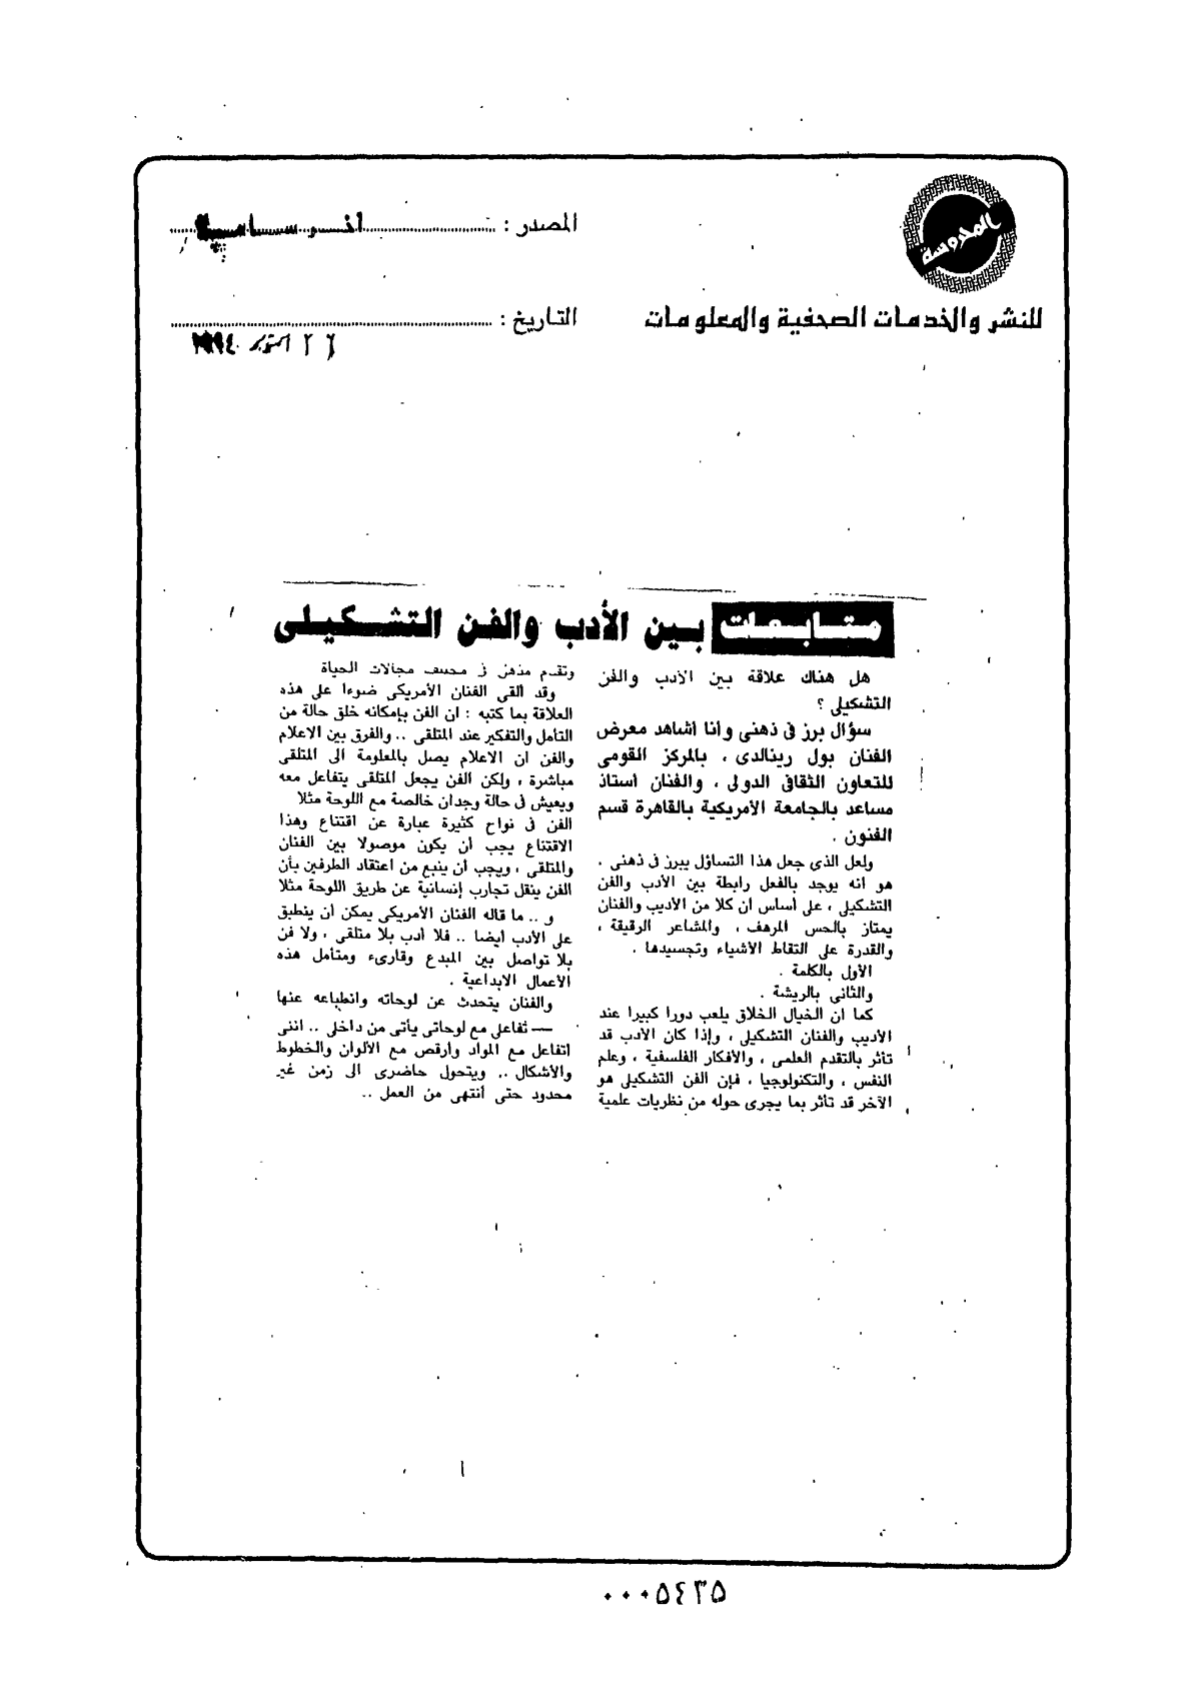 المحروسة
للنشر والخدمات الصحفية والمعلومات
المصدر : اخر ساعة
التاريخ :
٢٦ اكتوبر ١٩٩٤
متابعات بين الأدب والفن التشكيلى
هل هناك علاقة بين الأدب والفن
التشكيلى ؟
سؤال برز فى ذهنى وأنا أشاهد معرض
الفنان بول رينالدى ، بالمركز القومى
للتعاون الثقافى الدولى ، والفنان أستاذ
مساعد بالجامعة الأمريكية بالقاهرة قسم
الفنون .
ولعل الذى جعل هذا التساؤل يبرز فى ذهنى ،
هو أنه يوجد بالفعل رابطة بين الأدب والفن
التشكيلى ، على أساس أن كلا من الأديب والفنان
يمتاز بالحس المرهف ، والمشاعر الرقيقة ،
والقدرة على التقاط الأشياء وتجسيدها .
الأول بالكلمة .
والثانى بالريشة .
كما ان الخيال الخلاق يلعب دورا كبيرا عند
الأديب والفنان التشكيلى ، وإذا كان الأدب قد
تأثر بالتقدم العلمى ، والأفكار الفلسفية ، وعلم
النفس ، والتكنولوجيا ، فإن الفن التشكيلى هو
الآخر قد تأثر بما يجرى حوله من نظريات علمية
وتقدم مذهل فى مجالات الحياة
وقد ألقى الفنان الأمريكى ضوءا على هذه
العلاقة بما كتبه : ان الفن بإمكانه خلق حالة من
التأمل والتفكير عند المتلقى .. والفرق بين الاعلام
والفن ان الاعلام يصل بالمعلومة الى المتلقى
مباشرة ، ولكن الفن يجعل المتلقى يتفاعل معه
ويعيش فى حالة وجدان خالصة مع اللوحة مثلا
الفن فى نواح كثيرة عبارة عن اقتناع وهذا
الاقتناع يجب أن يكون موصولا بين الفنان
والمتلقى ، ويجب أن ينبع من اعتقاد الطرفين بأن
الفن ينقل تجارب إنسانية عن طريق اللوحة مثلا
و .. ما قاله الفنان الأمريكى يمكن أن ينطبق
على الأدب أيضا .. فلا أدب بلا متلقى ، ولا فن
بلا تواصل بين المبدع وقارىء ومتأمل هذه
الأعمال الابداعية .
والفنان يتحدث عن لوحاته وانطباعه عنها
— تفاعلى مع لوحاتى يأتى من داخلى .. اننى
أتفاعل مع المواد وأرقص مع الألوان والخطوط
والأشكال .. ويتحول حاضرى الى زمن غير
محدود حتى أنتهى من العمل ..
٠٠٠٥٤٣٥